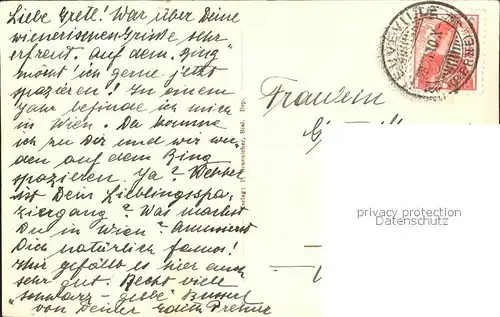 Liebe Gretl! War über Deine
wienerischen Grüsse sehr
erfreut. Auf dem „Ring"
möcht' ich gerne jetzt
spazieren! In einem
Jahr befinde ich mich
in Wien. Da komme
ich zu Dir und wir wer-
den auf dem Ring
spazieren. Ja? Welcher
ist Dein Lieblingsspa-
ziergang? Was machst
Du in Wien? Amüsierst
Dich natürlich famos!
Mir gefällt es hier auch
sehr gut. Recht viele
„schwarz-gelbe" Bussel
von Deiner Edith
Fräulein
NEUVEVILLE
Verlag:
Biel. Dep.
privacy protection
WATERMARK